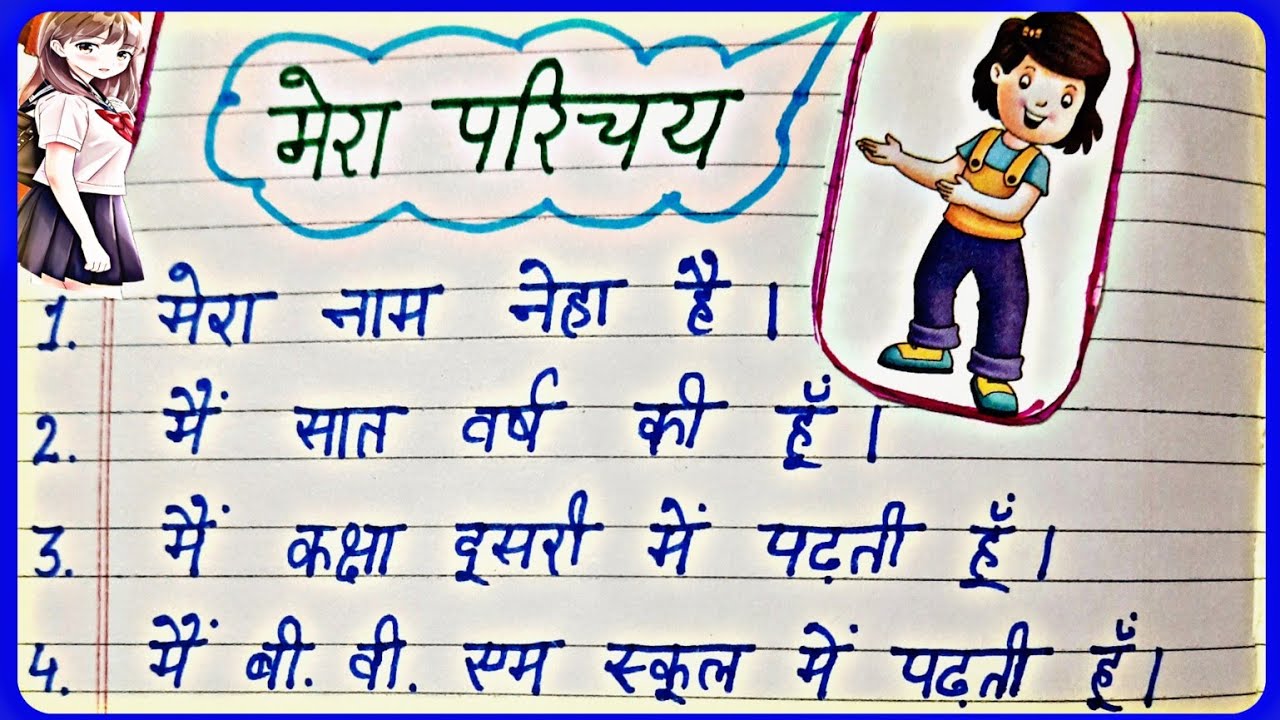 मेरा परिचय
1. मेरा नाम नेहा है ।
2. मैं सात वर्ष की हूँ ।
3. मैं कक्षा दूसरी में पढ़ती हूँ ।
4. मैं बी. वी. एम स्कूल में पढ़ती हूँ ।